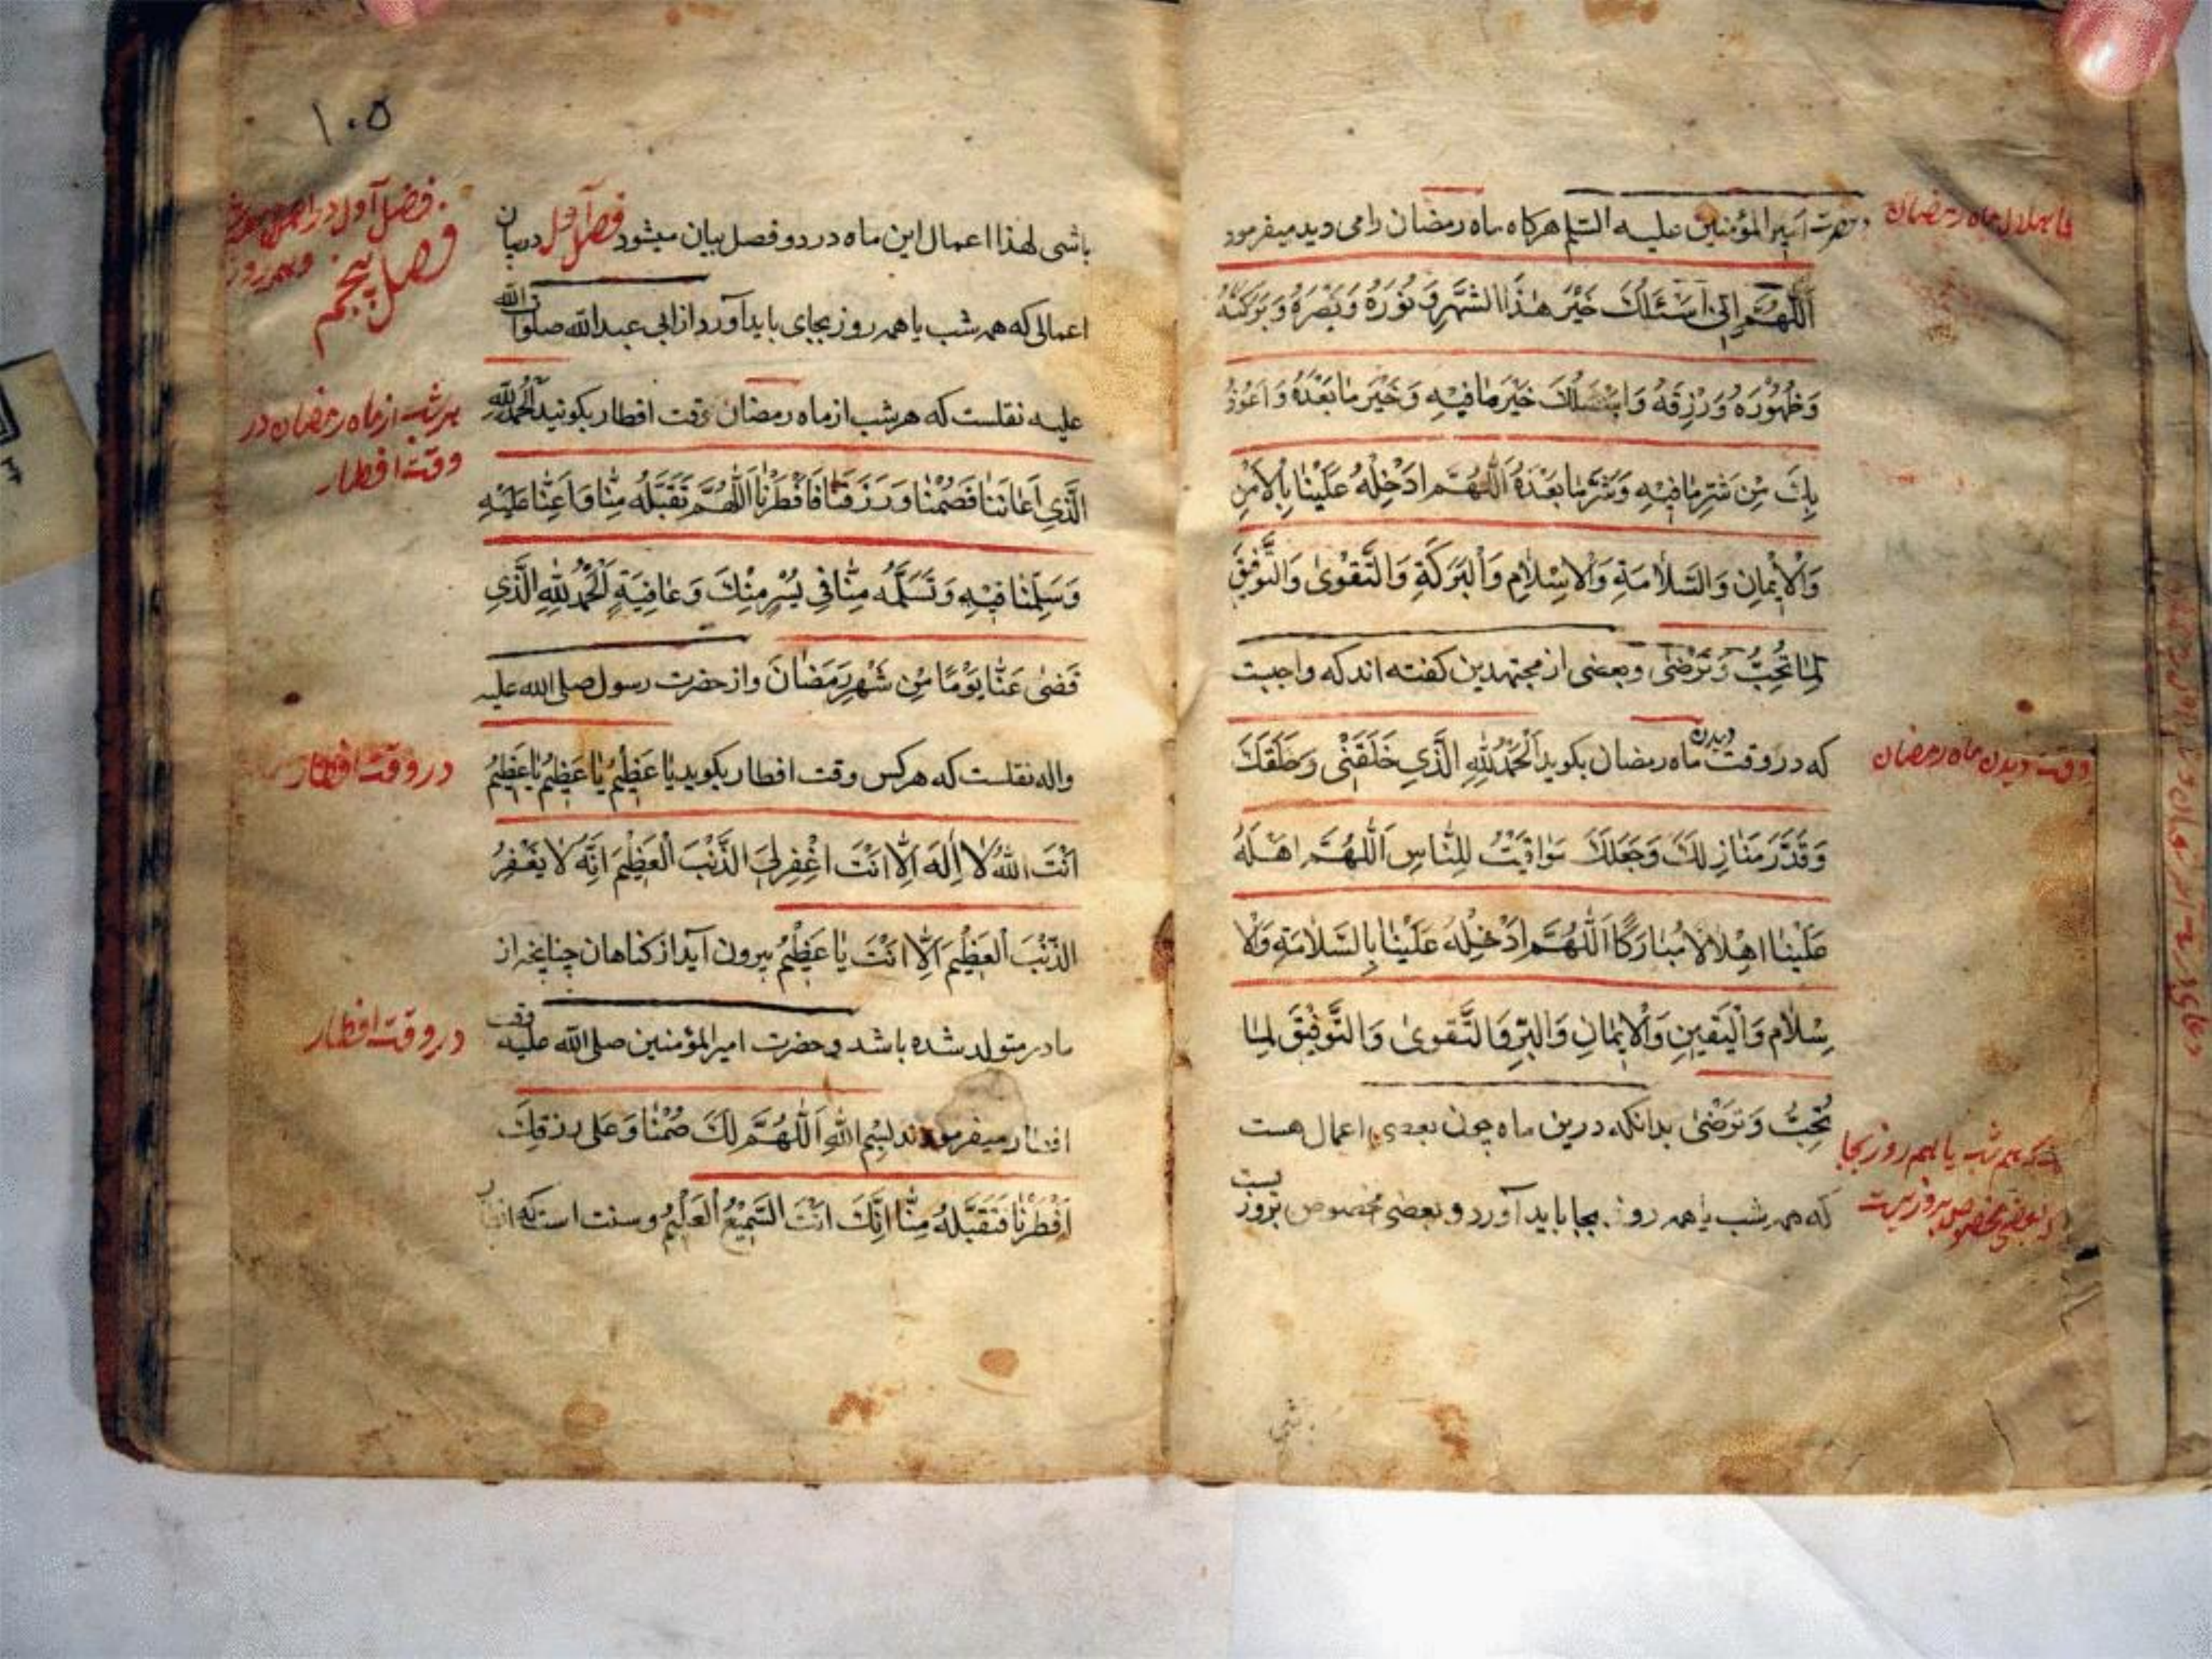 وحضرت امیر المؤمنین علیه السلم هرکاه ماه رمضان رامی دید میفرمود
اَللّٰهُمَّ اِنّی اَسْئَلُكَ خَیْرَ هٰذَا الشَّهْرِ وَ نُورَهُ وَ نَصْرَهُ وَ بَرَکَتَهُ
وَظُهُورَهُ وَرِزْقَهُ وَاَسْئَلُكَ خَیْرَ مٰا فیٖهِ وَخَیْرَ مٰا بَعْدَهُ وَ اَعُوذُ
بِكَ مِنْ شَرِّ مٰا فیٖهِ وَشَرِّ مٰا بَعْدَهُ اَللّٰهُمَّ اَدْخِلْهُ عَلَیْنٰا بِالْاَمْنِ
وَالْاٖیمٰانِ وَالسَّلاٰمَةِ وَالْاِسْلاٰمِ وَالْبَرَكَةِ وَالتَّقْوىٰ وَالتَّوْفیٖقِ
لِمٰا تُحِبُّ وَتَرْضىٰ وبعضی از مجتهدین کفته اند که واجبت
که در وقت دیدن ماه رمضان بکوید اَلْحَمْدُ لِلّٰهِ الَّذی خَلَقَنی وَ خَلَقَكَ
وَقَدَّرَ مَنٰازِلَكَ وَجَعَلَكَ مَوٰاقیٖتُ لِلنّٰاسِ اَللّٰهُمَّ اَهِلَّهُ
عَلَیْنٰا اِهْلاٰلاً مُبٰارَکًا اَللّٰهُمَّ اَدْخِلْهُ عَلَیْنٰا بِالسَّلاٰمَةِ وَالْا
سْلاٰمِ وَالْیَقیٖنِ وَالْاٖیمٰانِ وَالْبِرِّ وَالتَّقْوىٰ وَالتَّوْفیٖقَ لِمٰا
تُحِبُّ وَتَرْضىٰ بدانکه درین ماه چون بعضی اعمال هست
که همه شب یا همه روز بجا باید آورد و بعضی مخصوص بروز یست
ماه رمضان
وقت دیدن ماه رمضان
که همه شب یا همه روز بجا
و بعضی مخصوص بروزیست
۱۰۵
باشی لهذا اعمال این ماه در دو فصل بیان میشود فصل اول در بیان
اعمالی که همه شب یا همه روز بجای باید آورد از ابی عبد الله صلوات الله
علیه نقلست که هر شب از ماه رمضان وقت افطار بکوئید اَلْحَمْدُ لِلّٰهِ
الَّذی اَعٰانَنٰا فَصُمْنٰا وَ رَزَقَنٰا فَاَفْطَرْنٰا اَللّٰهُمَّ تَقَبَّلْهُ مِنّٰا وَ اَعِنّٰا عَلَیْهِ
وَ سَلِّمْنٰا فیٖهِ وَ تَسَلَّمْهُ مِنّٰا فی یُسْرٍ مِنْكَ وَ عٰافِیَةٍ اَلْحَمْدُ لِلّٰهِ الَّذی
قَضىٰ عَنّٰا یَوْمًا مِنْ شَهْرِ رَمَضٰانَ واز حضرت رسول صلی الله علیه
واله نقلست که هر کس وقت افطار بکوید یٰا عَظیٖمُ یٰا عَظیٖمُ یٰا عَظیٖمُ
اَنْتَ اللّٰهُ لاٰ اِلٰهَ اِلاّٰ اَنْتَ اغْفِرْ لِیَ الذَّنْبَ الْعَظیٖمَ اِنَّهُ لاٰ یَغْفِرُ
الذَّنْبَ الْعَظیٖمَ اِلاّٰ اَنْتَ یٰا عَظیٖمُ بیرون آید از کناهان چنانچه از
مادر متولد شده باشد و حضرت امیر المؤمنین صلی الله علیه وقت
افطار میفرمودند بِسْمِ اللّٰهِ اَللّٰهُمَّ لَكَ صُمْنٰا وَ عَلیٰ رِزْقِكَ
اَفْطَرْنٰا فَتَقَبَّلْهُ مِنّٰا اِنَّكَ اَنْتَ السَّمیٖعُ الْعَلیٖمُ و سنت است که
فصل آول در
فصل پنجم
هر شب از ماه رمضان در
وقت افطار
در وقت افطار
در وقت افطار